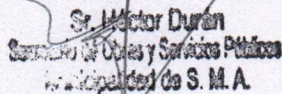 Sr. Héctor Durán
Secretario de Obras y Servicios Públicos
Municipalidad de S. M. A.